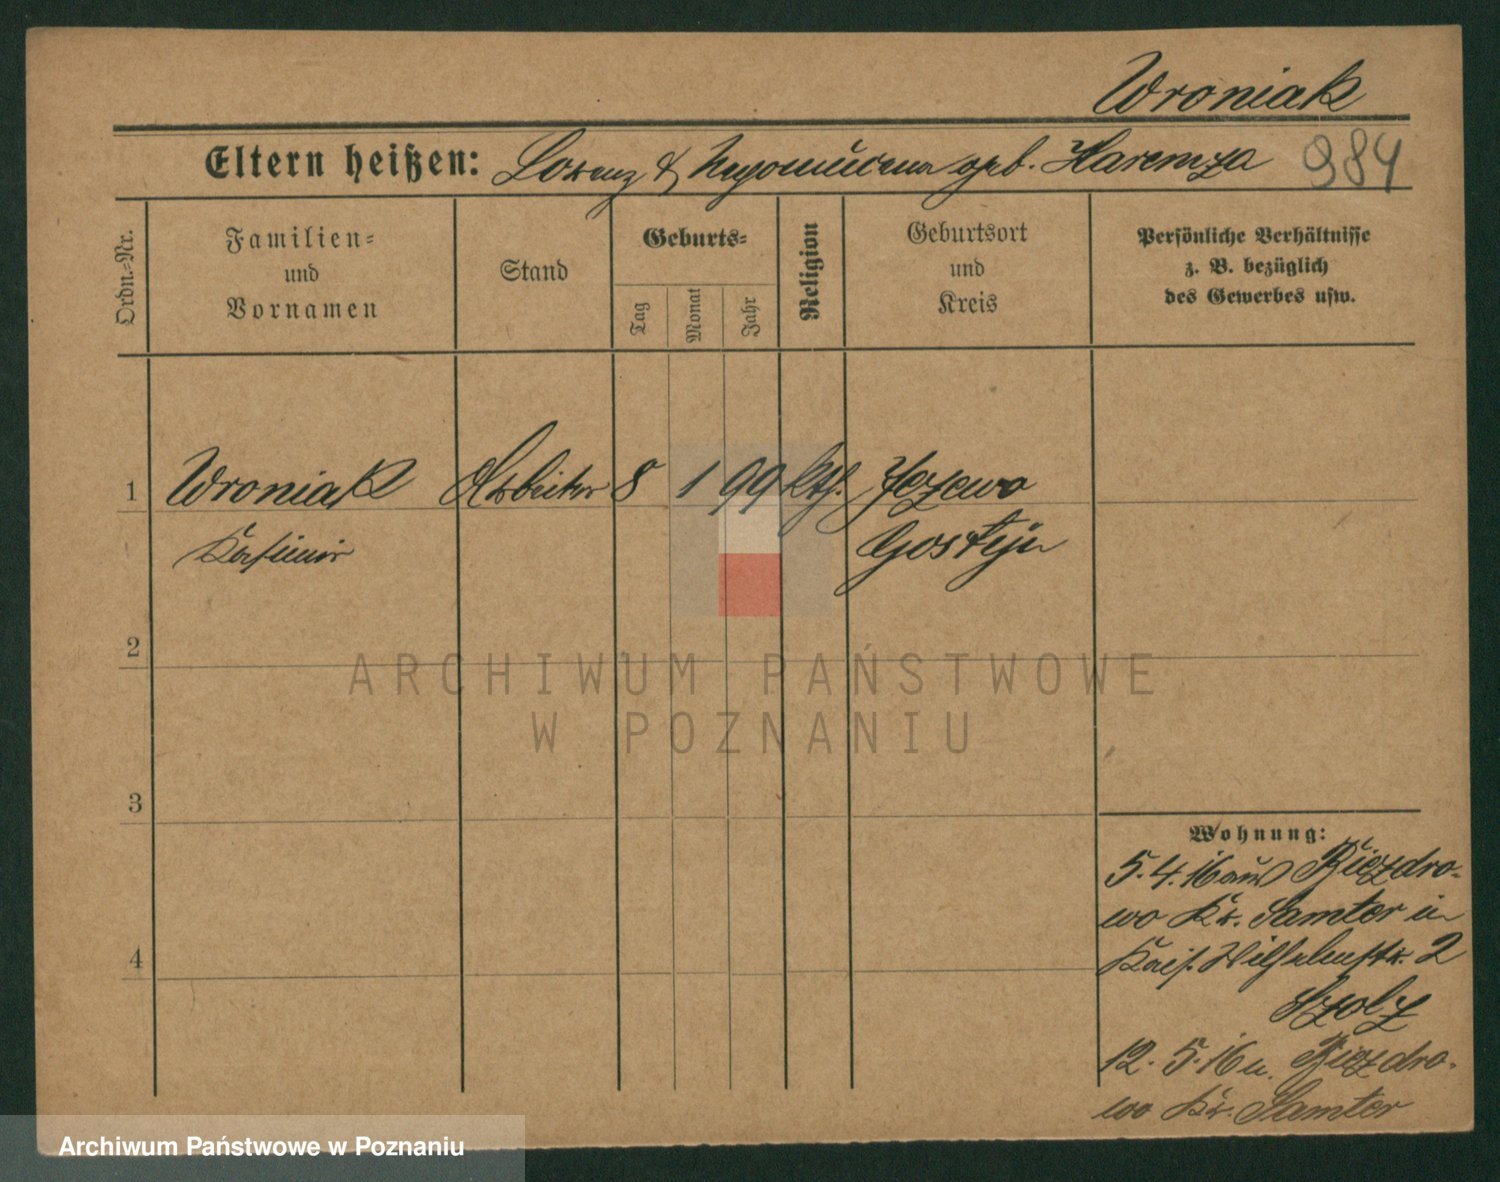 Wroniak
Eltern heißen: Lorenz & Nepomucena geb. Haremza 984
Ordn.-Nr.
Familien-
und
Vornamen
Stand
Geburts-
Tag
Monat
Jahr
Religion
Geburtsort
und
Kreis
Persönliche Verhältnisse
z. B. bezüglich
des Gewerbes usw.
1 Wroniak Arbeiter 8 1 99 kth. Jezewo
Kasimir Gostyn
2
ARCHIWUM PAŃSTWOWE
W POZNANIU
3
Wohnung:
5.4.16 aus
wo Kr. Samter in
4 Kais. Wilhelmstr. 2
Szolz
12.5.16 n.
wo Kr. Samter
Archiwum Państwowe w Poznaniu